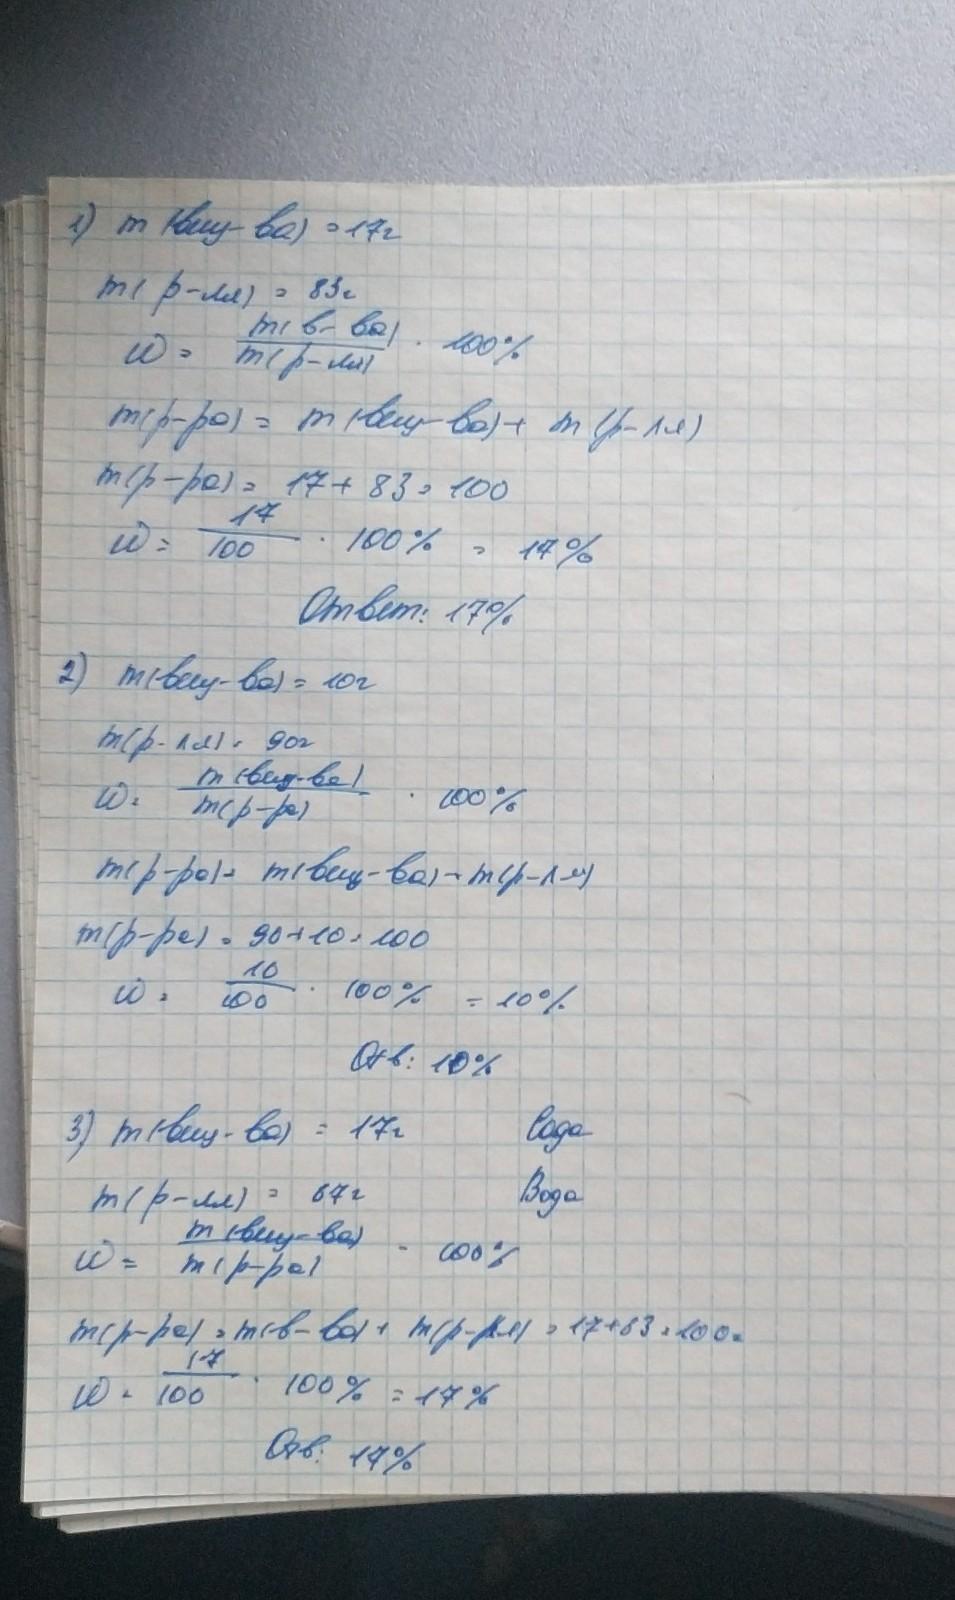 1) m(вещ-ва) = 17г
m(р-ля) = 83г
ω = m(в-ва) / m(р-ля) · 100%
m(р-ра) = m(вещ-ва) + m(р-ля)
m(р-ра) = 17 + 83 = 100
ω = 17 / 100 · 100% = 17%
Ответ: 17%
2) m(вещ-ва) = 10г
m(р-ля) = 90г
ω = m(вещ-ва) / m(р-ра) · 100%
m(р-ра) = m(вещ-ва) + m(р-ля)
m(р-ра) = 90 + 10 = 100
ω = 10 / 100 · 100% = 10%
Отв: 10%
3) m(вещ-ва) = 17г Сода
m(р-ля) = 67г Вода
ω = m(вещ-ва) / m(р-ра) · 100%
m(р-ра) = m(в-ва) + m(р-ля) = 17 + 83 = 100г
ω = 17 / 100 · 100% = 17%
Отв: 17%